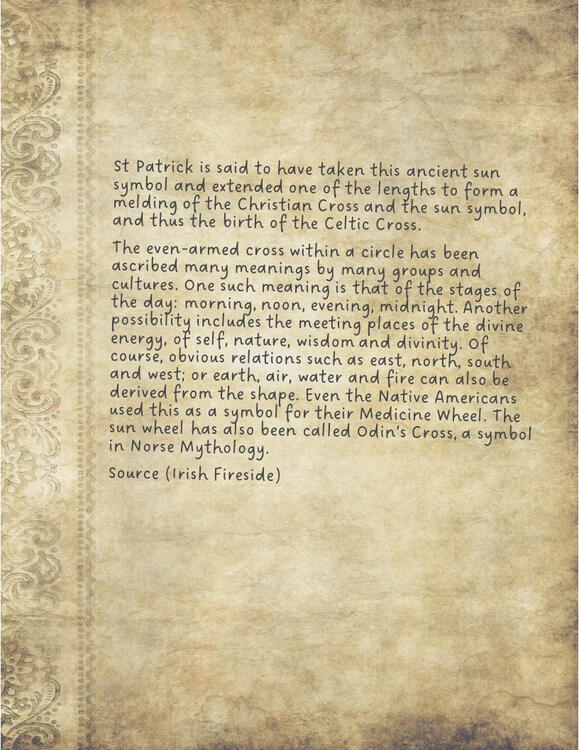 St Patrick is said to have taken this ancient sun
symbol and extended one of the lengths to form a
melding of the Christian Cross and the sun symbol,
and thus the birth of the Celtic Cross.
The even-armed cross within a circle has been
ascribed many meanings by many groups and
cultures. One such meaning is that of the stages of
the day: morning, noon, evening, midnight. Another
possibility includes the meeting places of the divine
energy, of self, nature, wisdom and divinity. Of
course, obvious relations such as east, north, south
and west; or earth, air, water and fire can also be
derived from the shape. Even the Native Americans
used this as a symbol for their Medicine Wheel. The
sun wheel has also been called Odin's Cross, a symbol
in Norse Mythology.
Source (Irish Fireside)